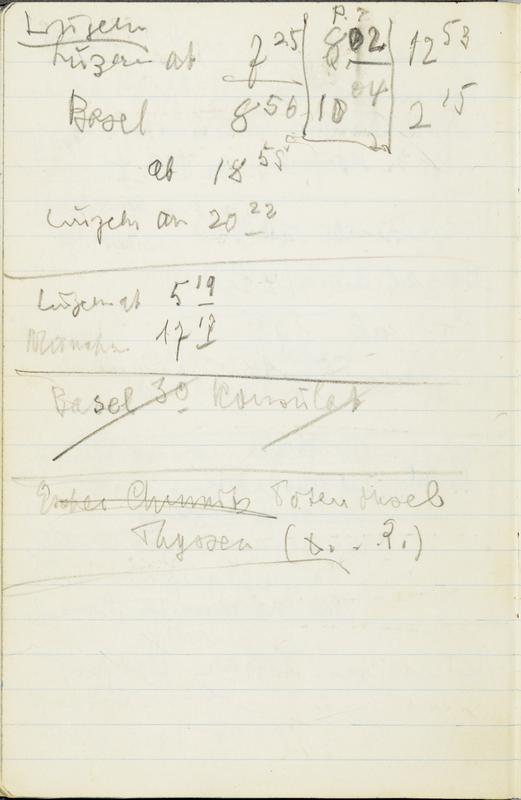 Luzern
P. ?
Luzern ab 7 25 8 02 12 53
Basel 8 56 10 04 2 15
ab 18 58
Luzern an 20 22
Luzern ab 5 19
München 17 19
Basel 30 Konsulat
Chemnitz Toteninsel
Thyssen